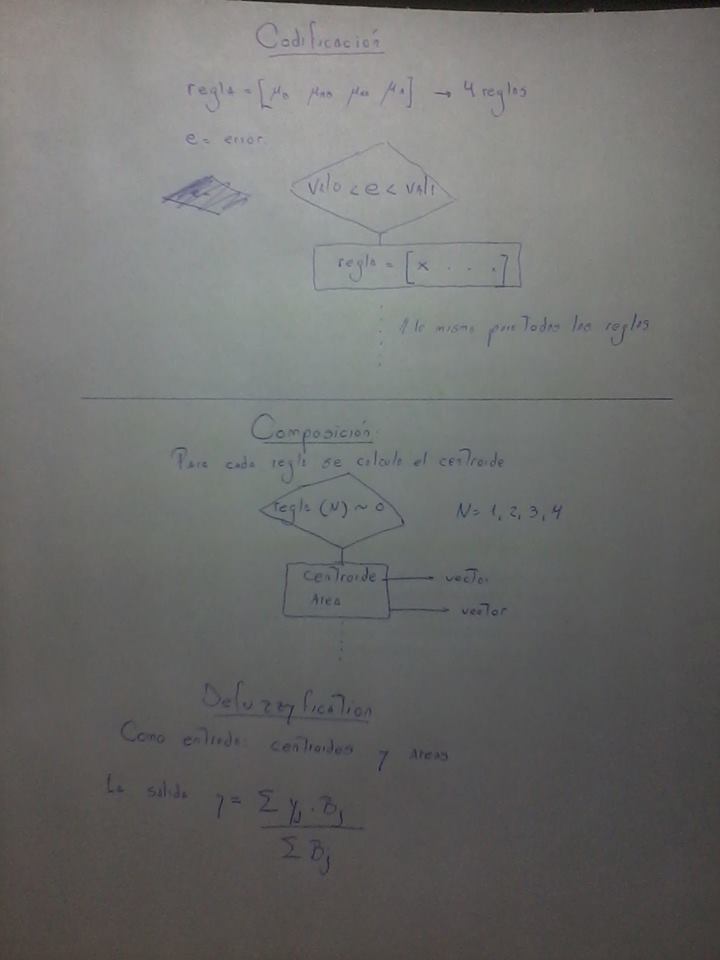 Codificación
regla = [μB μMB μMA μA] → 4 reglas
e = error.
val0 < e < val1
regla = [x . . .]
lo mismo para todas las reglas
Composición:
Para cada regla se calcula el centroide
regla (N) ~ 0 N = 1, 2, 3, 4
centroide → vector
Area → vector
Defuzzyfication
Como entrada: centroides y areas
La salida y = Σ yj . Bj
Σ Bj